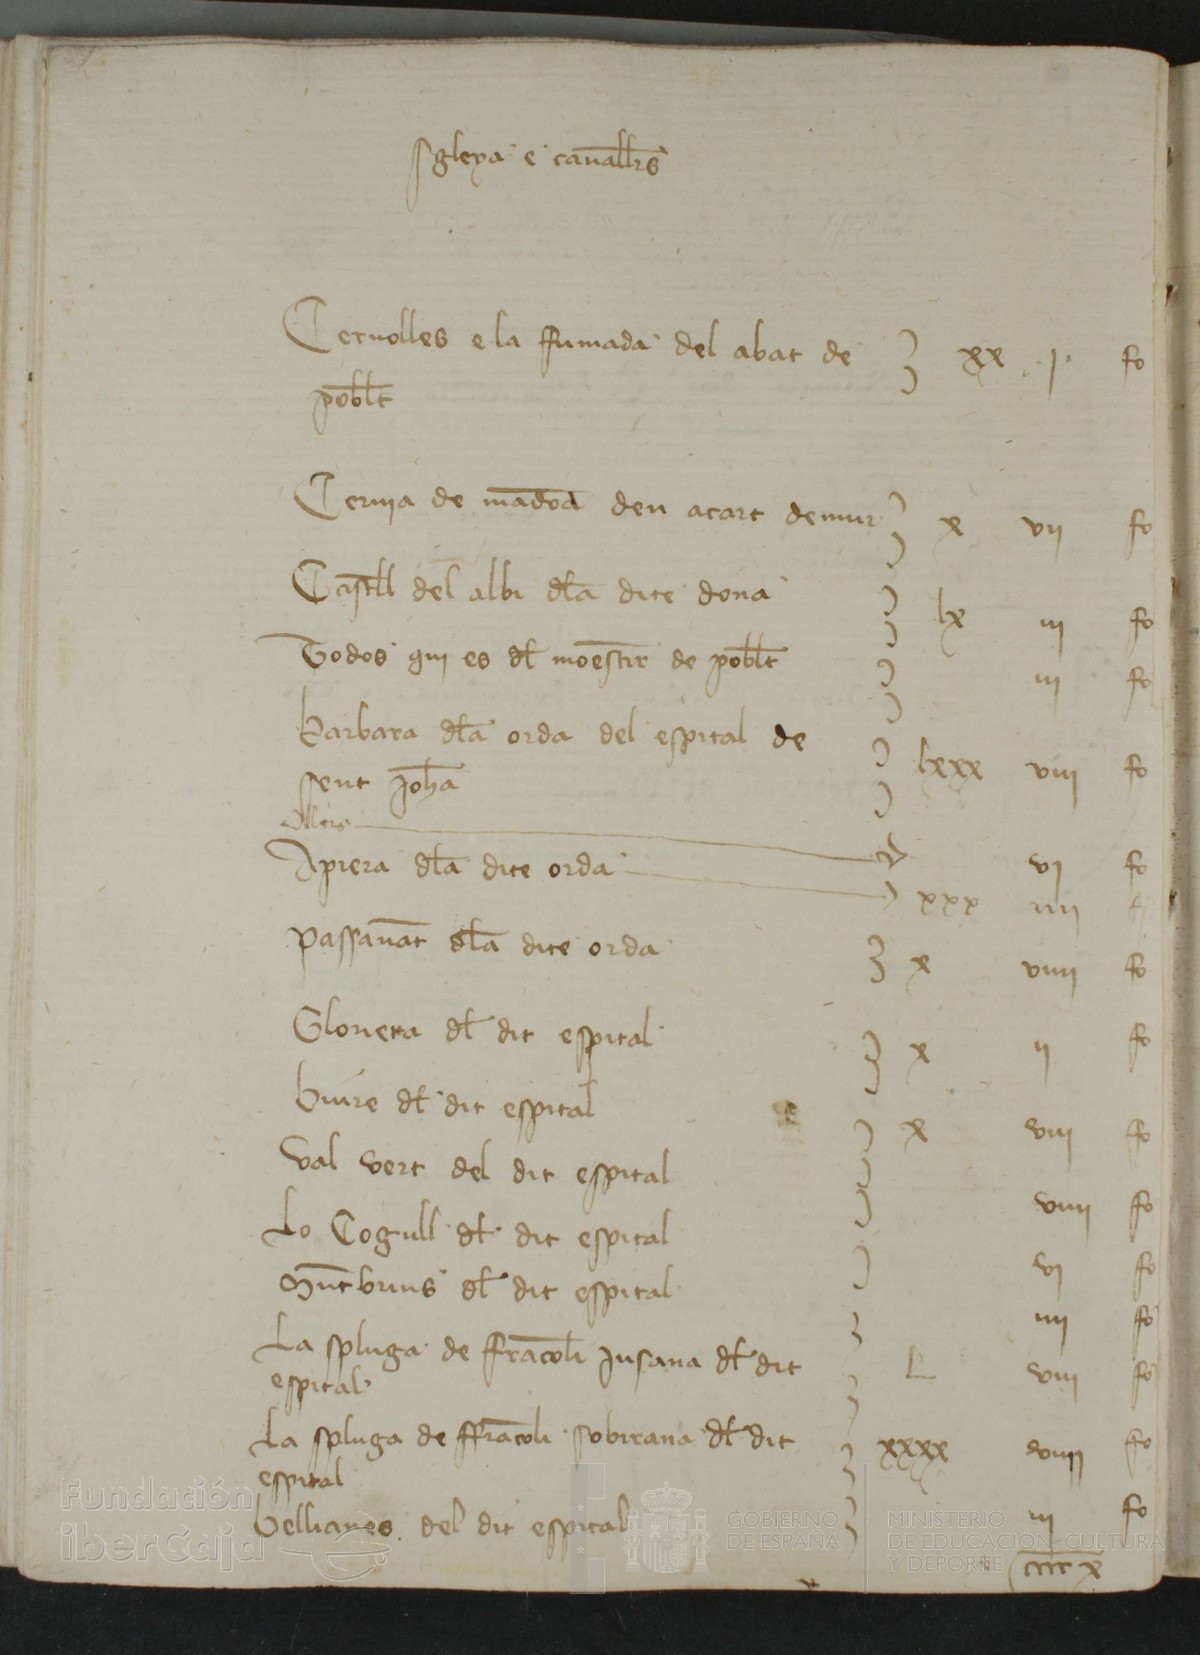 sglexa e cauallrs
Ceruolles e la ffumada del abat de xx . j . fo
poblt
Ceruia de madoa den acart demur x vij fo
Castll del albi dla dite dona lx iij fo
Todos qui es dl moestir de poblt iij fo
barbara dla orda del espital de lxxx viij fo
sent joha
Ollers vj fo
Apiera dla dite orda xxx iiij fo
passanat dla dite orda x viiij fo
Glorieta dl dit espital x ij fo
biure dl dit espital x viij fo
Val vert del dit espital viiij fo
Lo Cogull dl dit espital vj fo
Mutbrius dl dit espital iiij fo
La spluga de ffracoli jusana dl dit L viij fo
espital
La spluga de ffracoli sobirana dl dit xxxx viiij fo
espital
bellianes del dit espital iij fo
cccc x
Fundación
iberCaja
GOBIERNO
DE ESPAÑA
MINISTERIO
DE EDUCACIÓN, CULTURA
Y DEPORTE